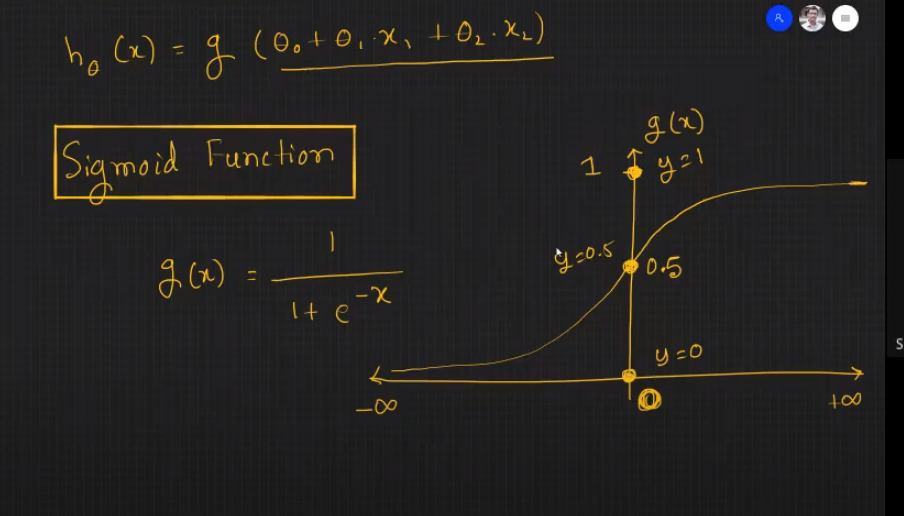 h_θ(x) = g (θ₀ + θ₁·x₁ + θ₂·x₂)
Sigmoid Function
g(x) = 1 / (1 + e^{-x})
g(x)
1 y=1
y=0.5 0.5
y=0
-∞ 0 +∞
S